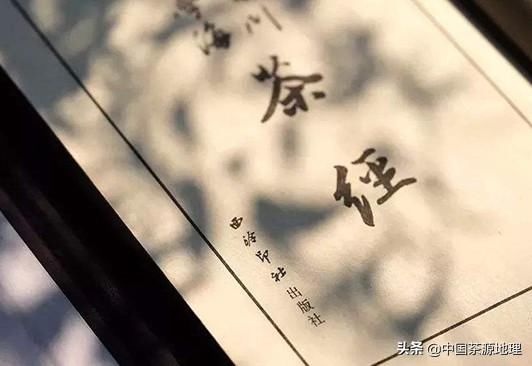 茶经
西泠印社出版社
头条 @中国茶源地理